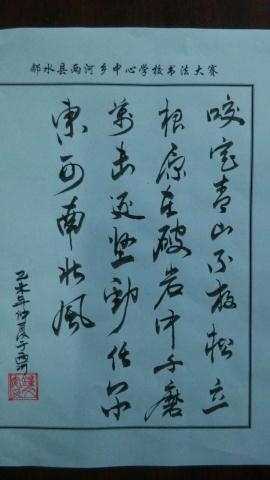 邻水县两河乡中心学校书法大赛
咬定青山不放松立
根原在破岩中千磨
萬击还坚劲任尔
东西南北風
乙未年仲夏于两河